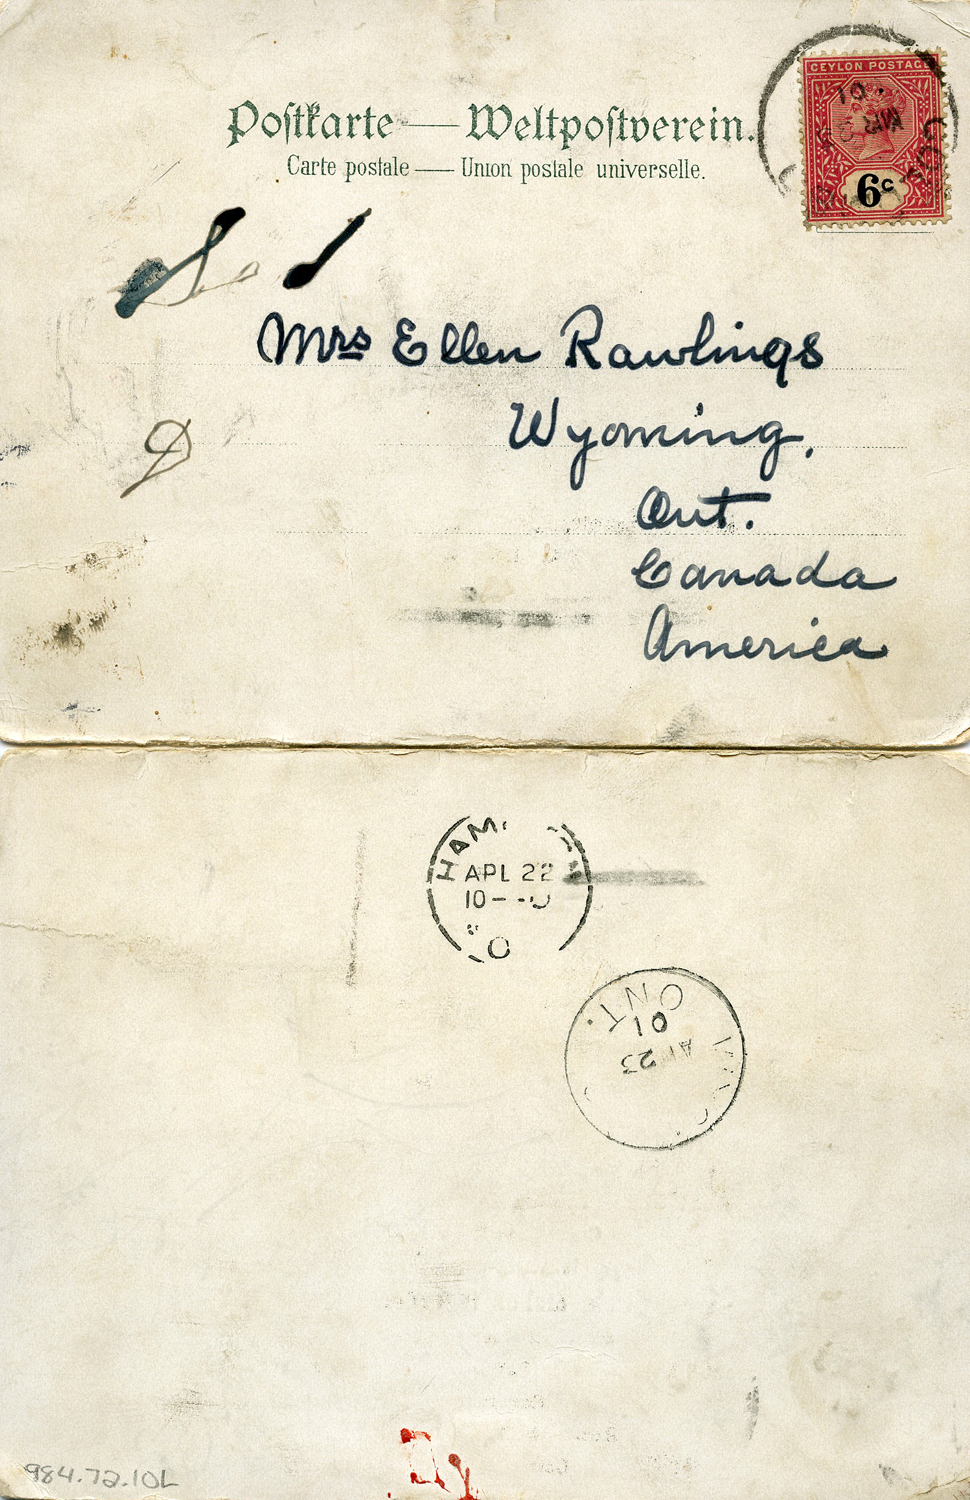 Postkarte — Weltpostverein.
Carte postale — Union postale universelle.
CEYLON POSTAGE
6c
Mrs Ellen Rawlings
Wyoming,
Ont.
Canada
America
HAM
APL 22
10
O
ONT.
01
23
984.72.10L